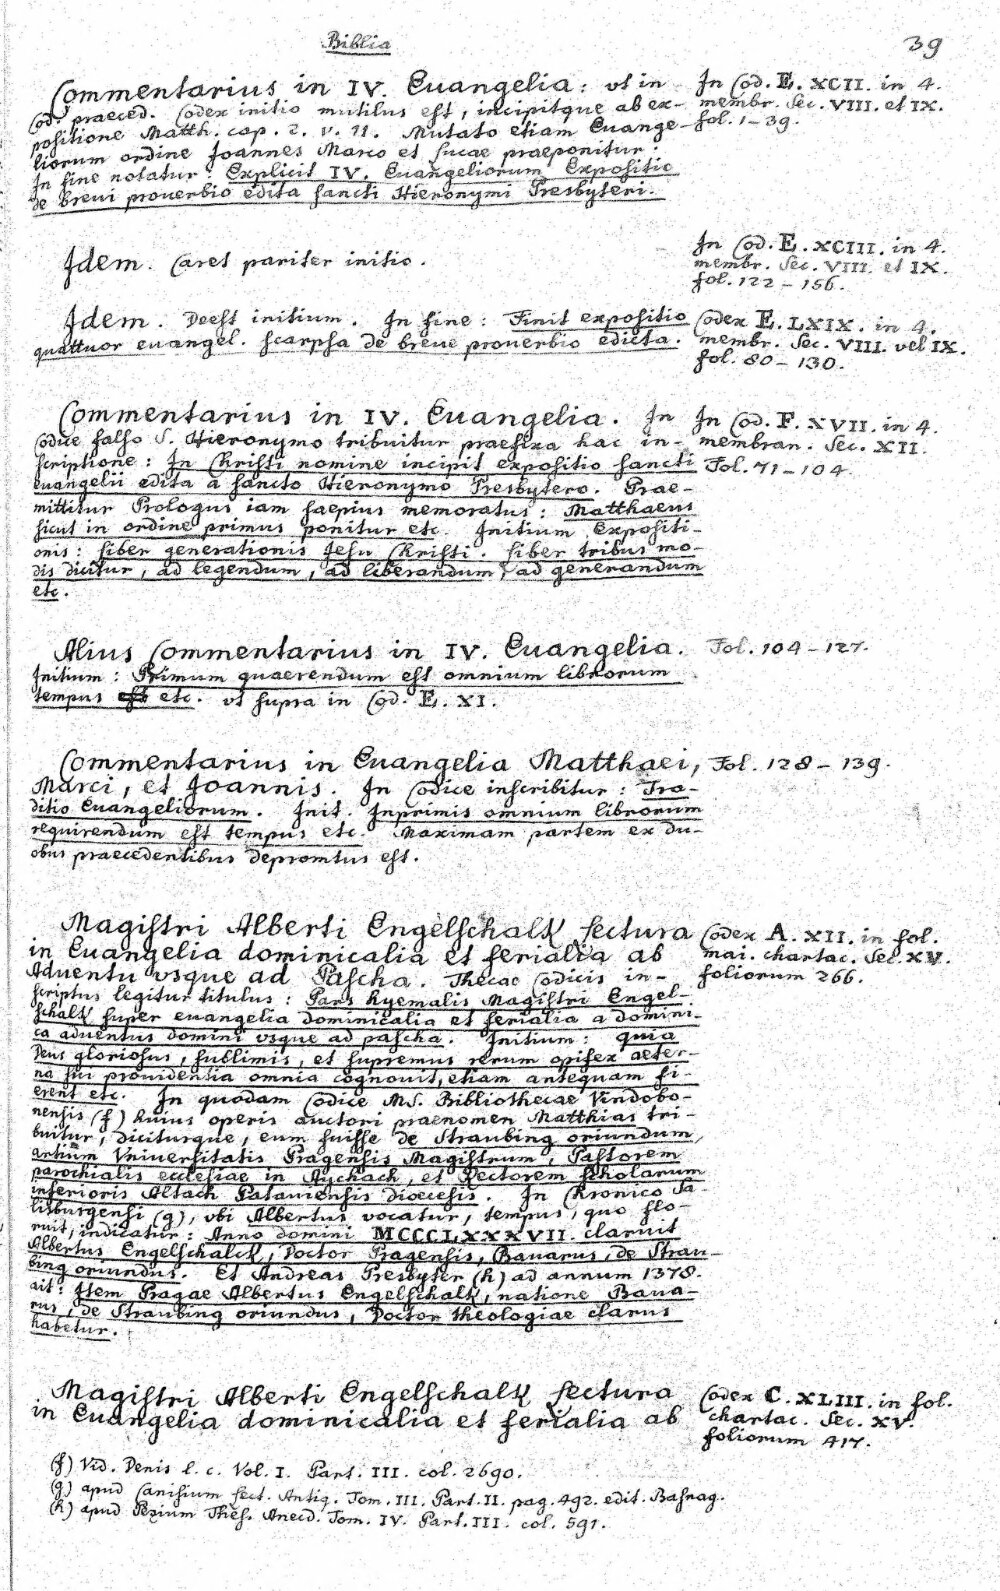 Biblia
39
Commentarius in IV. Euangelia: vt in
Cod. praeced. Codex initio mutilus est, incipitque ab ex-
positione Matth. cap. 2. v. 11. Mutato etiam Euange-
liorum ordine Joannes Marco et Lucae praeponitur.
In fine notatur: Explicit IV. Euangeliorum Expositio
de breui prouerbio edita sancti Hieronymi Presbyteri.
In Cod. E. XCII. in 4.
membr. Sec. VIII. et IX.
fol. 1-39.
Idem. Caret pariter initio.
In Cod. E. XCIII. in 4.
membr. Sec. VIII. et IX.
fol. 122-156.
Idem. Deest initium. In fine: Finit expositio
quattuor euangel. scarpsa de breue prouerbio edicta.
Codex E. LXIX. in 4.
membr. Sec. VIII. vel IX.
fol. 80-130.
Commentarius in IV. Euangelia. In
Codice falso S. Hieronymo tribuitur praefixa hac in-
scriptione: In Christi nomine incipit expositio sancti
euangelii edita a sancto Hieronymo Presbytero. Prae-
mittitur Prologus iam saepius memoratus: Matthaeus
sicut in ordine primus ponitur etc. Initium Expositi-
onis: Liber generationis Jesu Christi. Liber tribus mo-
dis dicitur, ad legendum, ad liberandum, ad generandum
etc.
In Cod. F. XVII. in 4.
membran. Sec. XII.
Fol. 71-104.
Alius Commentarius in IV. Euangelia.
Initium: Primum quaerendum est omnium librorum
tempus est etc. vt supra in Cod. E. XI.
Fol. 104-127.
Commentarius in Euangelia Matthaei,
Marci, et Joannis. In Codice inscribitur: Tra-
ditio Euangeliorum. Init. Inprimis omnium librorum
requirendum est tempus etc. Maximam partem ex du-
obus praecedentibus depromtus est.
Fol. 128-139.
Magistri Alberti Engelschalk Lectura
in Euangelia dominicalia et ferialia ab
Aduentu vsque ad Pascha. Thecae Codicis in-
scriptus legitur titulus: Pars hyemalis Magistri Engel-
schalk super euangelia dominicalia et ferialia a domini-
ca aduentus domini vsque ad pascha. Initium: quia
Deus gloriosus, sublimis, et supremus rerum opifex aeter-
na sui prouidentia omnia cognouit, etiam antequam fi-
erent etc. In quodam Codice MS. Bibliothecae Vindobo-
nensis (f) huius operis auctori praenomen Matthias tri-
buitur, diciturque, eum fuisse de Straubing oriundum,
artium Vniuersitatis Pragensis Magistrum, Pastorem
parochialis ecclesiae in Aychach, et Rectorem scholarum
inferioris Altach Patauiensis dioecesis. In Chronico Sa-
lisburgensi (g), vbi Albertus vocatur, tempus, quo flo-
ruit, indicatur: Anno domini MCCCLXXXVII. claruit
Albertus Engelschalck, Doctor Pragensis, Bauarus, de Strau-
bing oriundus. Et Andreas Presbyter (h) ad annum 1378.
ait: Item Pragae Albertus Engelschalk, natione Baua-
rus, de Straubing oriundus, Doctor theologiae clarus
habetur.
Codex A. XII. in fol.
mai. chartac. Sec. XV.
foliorum 266.
Magistri Alberti Engelschalk Lectura
in Euangelia dominicalia et ferialia ab
Codex C. XLIII. in fol.
chartac. Sec. XV.
foliorum 417.
(f) Vid. Denis l. c. Vol. I. Part. III. col. 2690.
(g) apud Canisium Lect. Antiq. Tom. III. Part. II. pag. 492. edit. Basnag.
(h) apud Pezium Thes. Anecd. Tom. IV. Part. III. col. 591.